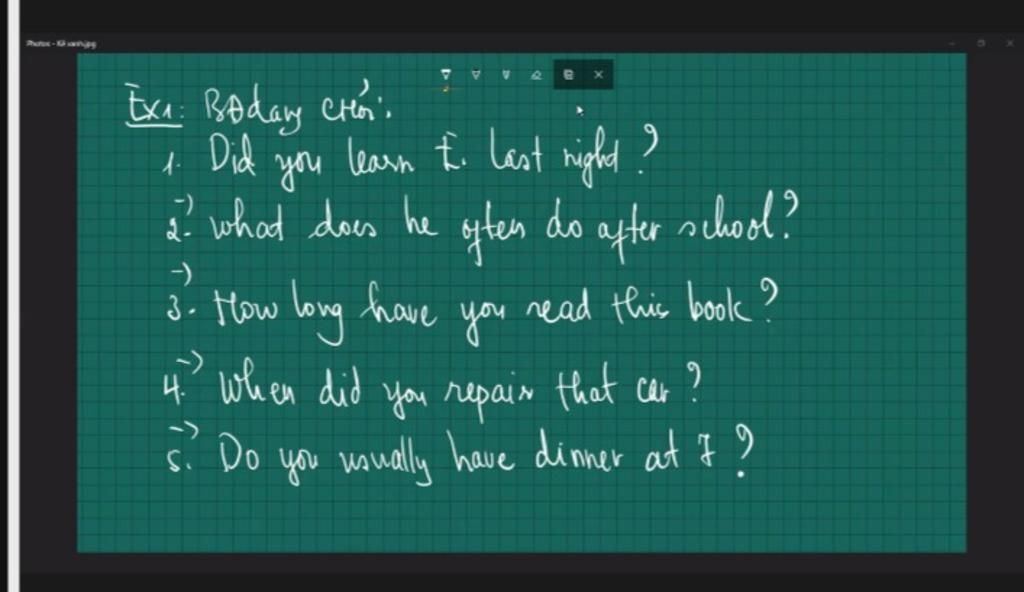 Photos - Kẻ xanh.jpg
Ex1: BĐ dạng
1. Did you learn E. last night ?
->
2. what does he often do after school?
->
3. How long have you read this book ?
->
4. When did you repair that car ?
->
5. Do you usually have dinner at 7 ?